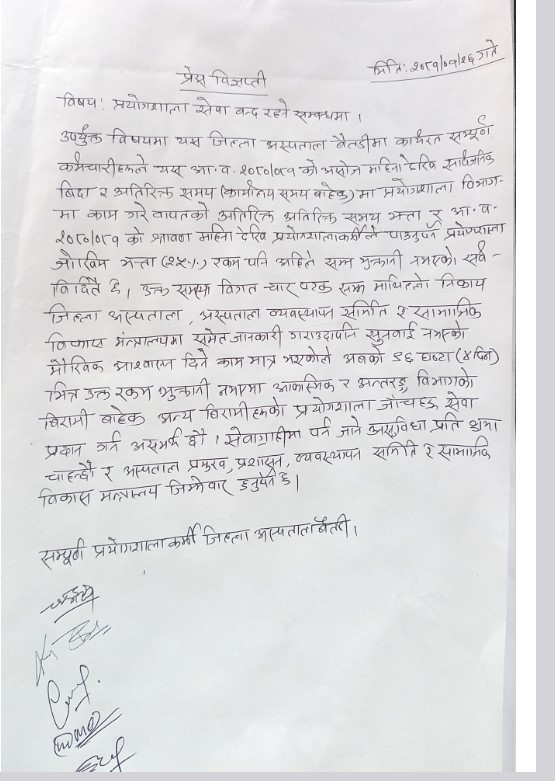 मिति: २०८१/०१/२६ गते
प्रेस विज्ञप्ती
विषय: प्रयोगशाला सेवा बन्द रहने सम्बन्धमा ।
उपर्युक्त विषयमा यस जिल्ला अस्पताल बैतडीमा कार्यरत सम्पूर्ण
कर्मचारीहरुले यस आ.व. २०८०/०८१ को असोज महिना देखि सार्वजनिक
बिदा र अतिरिक्त समय (कार्यालय समय बाहेक) मा प्रयोगशाला विभाग-
मा काम गरे वापतको अतिरिक्त अतिरिक्त समय भत्ता र आ.व.
२०८०/०८१ को श्रावण महिना देखि प्रयोगशालाकर्मीले पाउनुपर्ने प्रयोगशाला
जोखिम भत्ता (२५%) रकम पनि अहिले सम्म भुक्तानी नभएको सर्व-
विदितै छ । उक्त समस्या विगत चार पटक सम्म माथिल्लो निकाय
जिल्ला अस्पताल, अस्पताल व्यवस्थापन समिति र सामाजिक
विकास मन्त्रालयमा समेत जानकारी गराउदापनि सुनवाई नभएको
मौखिक आश्वासन दिने काम मात्र भएकोले अबको ९६ घण्टा (४ दिन)
भित्र उक्त रकम भुक्तानी नभएमा आकस्मिक र अन्तरङ्ग विभागको
बिरामी बाहेक अन्य बिरामीहरुको प्रयोगशाला जाँचहरु सेवा
प्रदान गर्न असमर्थ छौ । सेवाग्राहीमा पर्न जाने असुविधा प्रति क्षमा
चाहन्छौ र अस्पताल प्रमुख, प्रशासन, व्यवस्थापन समिति र सामाजिक
विकास मन्त्रालय जिम्मेवार हुनुपर्ने छ ।
सम्पूर्ण प्रयोगशालाकर्मी जिल्ला अस्पताल बैतडी ।